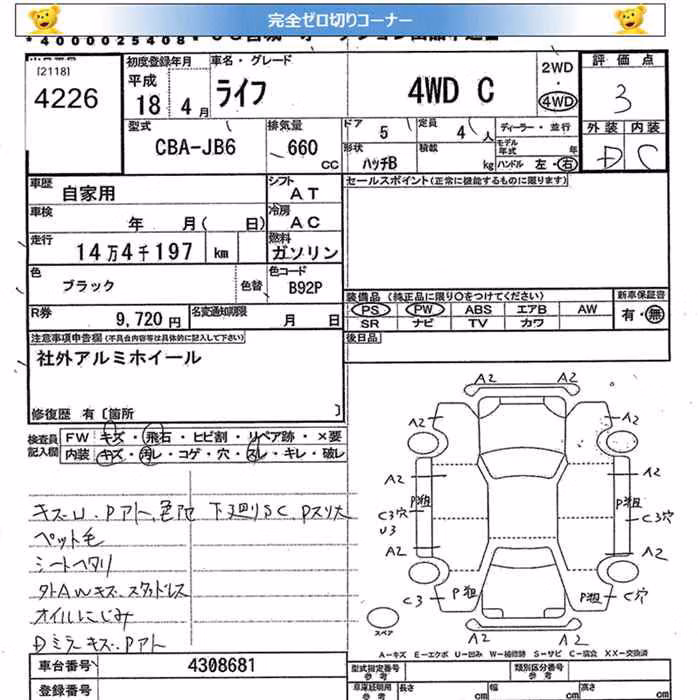 完全ゼロ切りコーナー
*4000025408*
[2118]
4226
初度登録年月
平成
18 4月
車名・グレード
ライフ 4WD C
2WD
・
4WD
評価点
3
外装 内装
D C
型式
CBA-JB6
排気量
660
CC
ドア 5
定員 4人
ディーラー・並行
形状
ハッチB
積載 kg
モデル年式 年
ハンドル 左・右
車歴
自家用
シフト
AT
セールスポイント(正常に機能するものに限ります)
車検
年 月( 日)
冷房
AC
走行
14万4千197 km
燃料
ガソリン
色
ブラック
色替
色コード
B92P
装備品 (純正品に限り○をつけてください)
新車保証書
PS PW ABS エアB AW
有・無
SR ナビ TV カワ
R券
9,720円
名変通知期限
月 日
注意事項申告欄(不具合内容等は具体的に記入して下さい)
後日品
社外アルミホイール
修復歴 有〔箇所 〕
検査員記入欄
FW キズ・飛石・ヒビ割・リペア跡・×要
内装 キズ・汚レ・コゲ・穴・スレ・キレ・破レ
キズ・U・Pアト、色アセ 下廻りSC、Pスリ大
ペット毛
シートヘタリ
外AWキズ・スタッドレス
オイルにじみ
Dミラーキズ・Pアト
A2 A2
A2 A2
A2 A2
P狙 P狙
C3穴 C3穴
U3
A2 A2
C3 P狙 P狙 C穴
スペア
A2 A2
A-キズ E-エクボ U-凹み W-補修跡 S-サビ C-腐食 XX-交換済
車台番号
4308681
型式指定番号
参考
類別区分番号
参考
登録番号
車庫証明用
参考
長さ cm 幅 cm 高さ cm